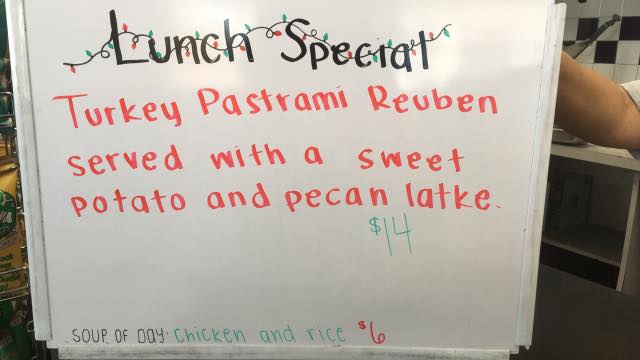 Lunch Special
Turkey Pastrami Reuben
served with a sweet
potato and pecan latke.
$14
SOUP OF DAY: Chicken and rice $6